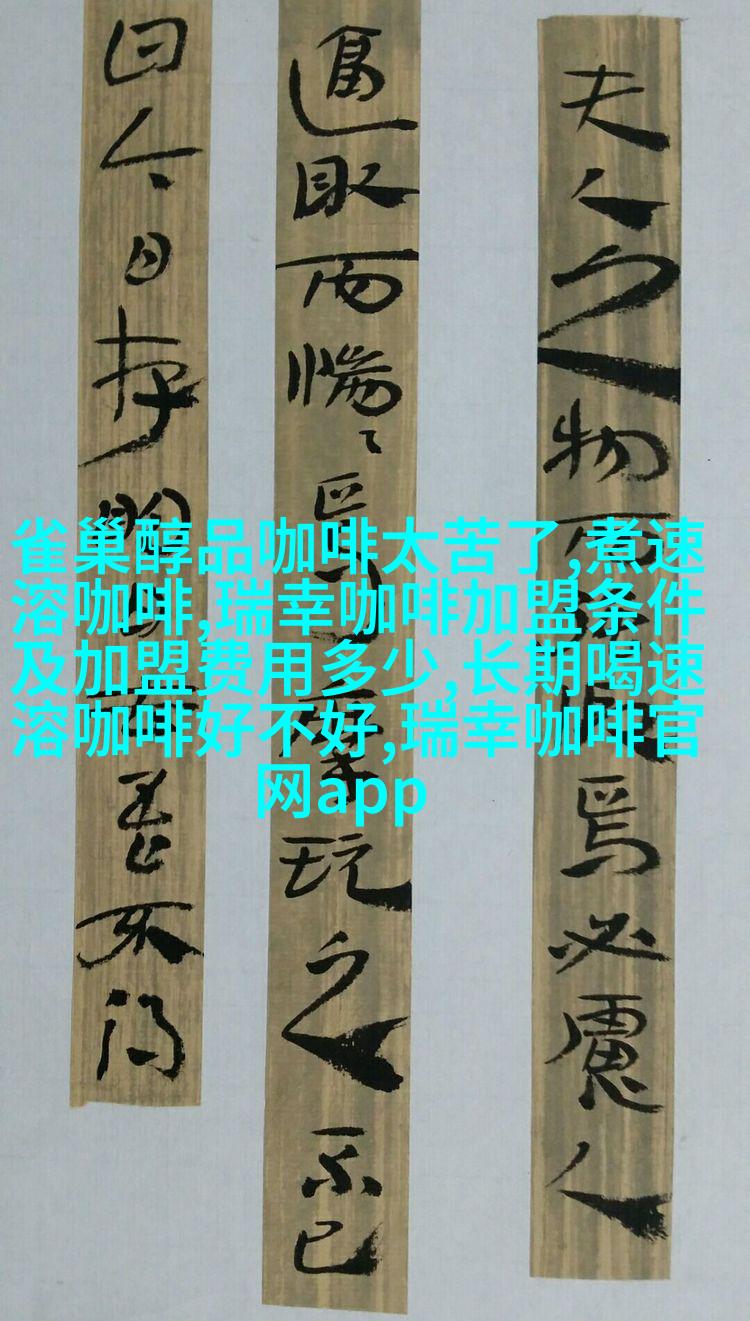 夫人之物而焉必慮人
逼取而惴〻焉摩玩之不已
曰今日存明吾不得
雀巢醇品咖啡太苦了,煮速
溶咖啡,瑞幸咖啡加盟条件
及加盟费用多少,长期喝速
溶咖啡好不好,瑞幸咖啡官
网app